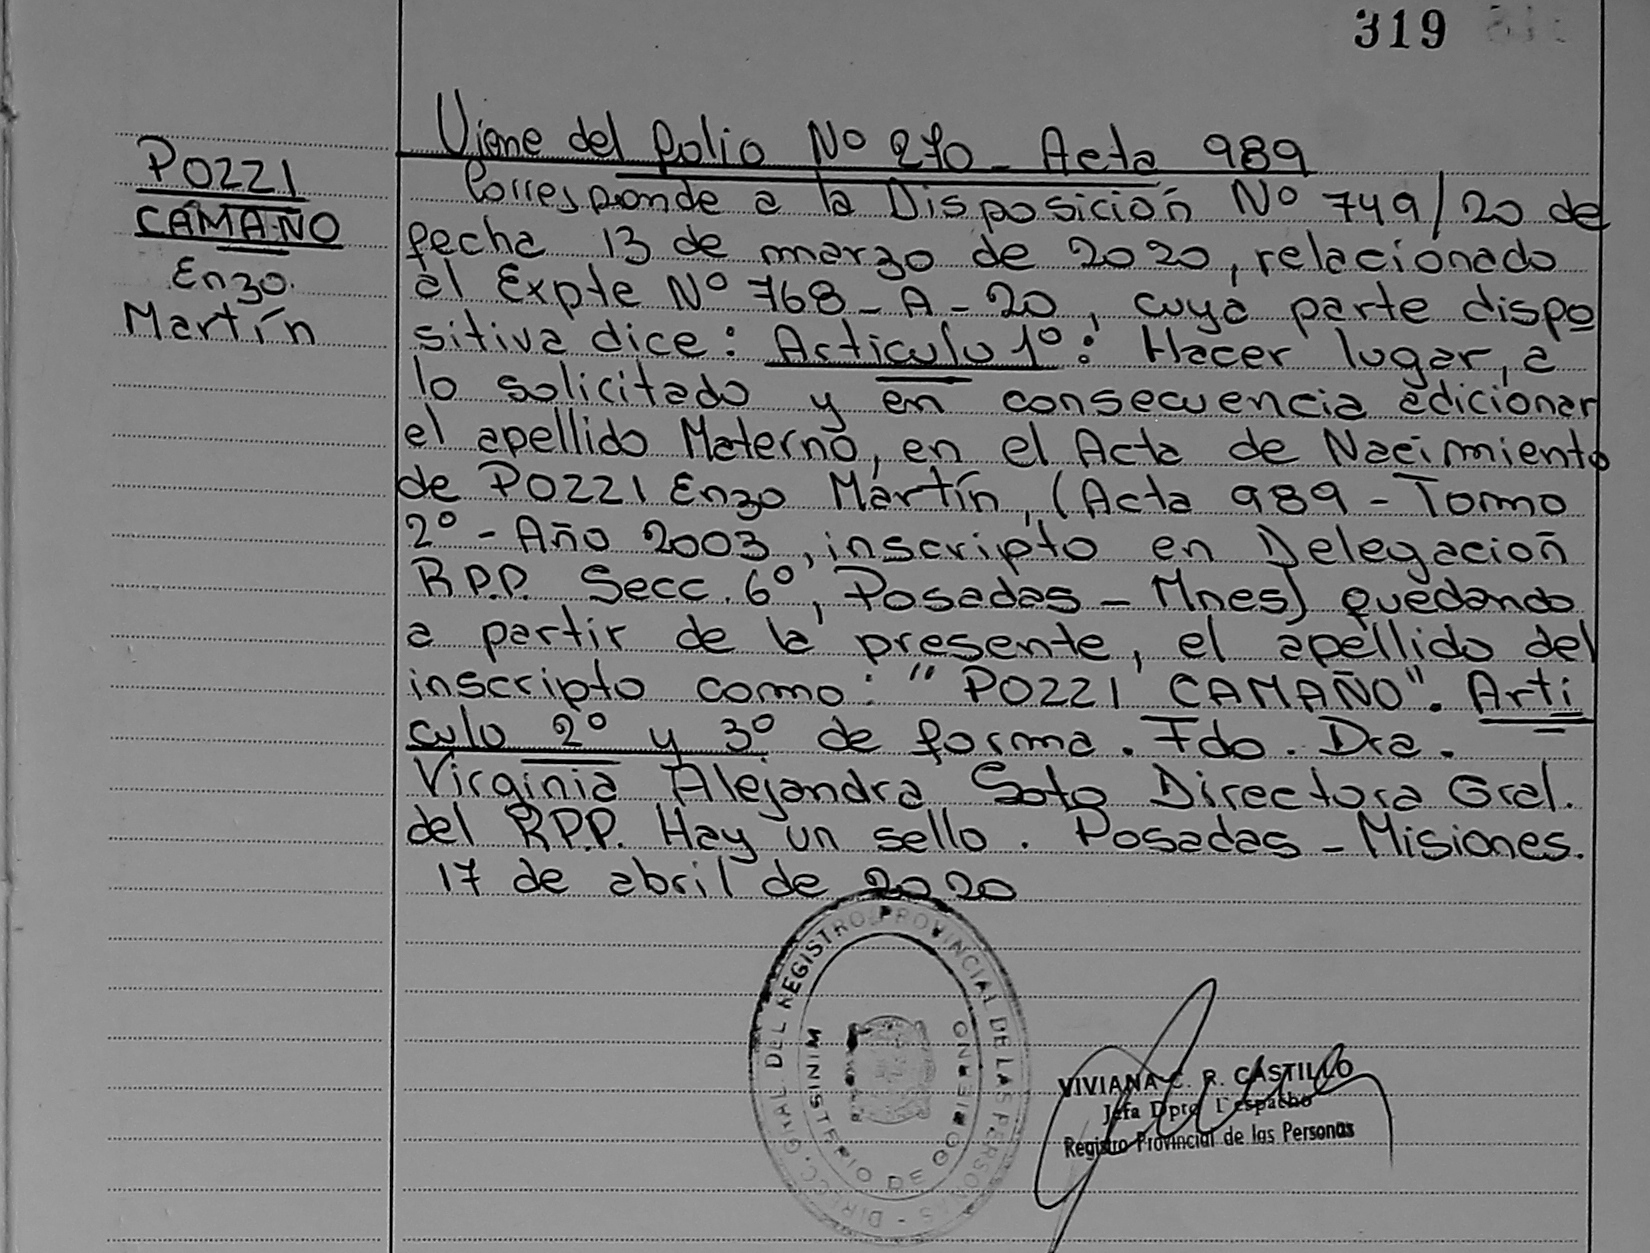 319
POZZI
CAMAÑO
Enzo
Martín
Viene del folio Nº 270 - Acta 989
Corresponde a la Disposición Nº 749/20 de
fecha 13 de marzo de 2020, relacionado
al Expte Nº 768-A-20, cuya parte dispo
sitiva dice: Articulo 1º: Hacer lugar, a
lo solicitado y en consecuencia adicionar
el apellido Materno, en el Acta de Nacimiento
de POZZI Enzo Martín, (Acta 989 - Tomo
2º - Año 2003, inscripto en Delegación
R.P.P. Secc. 6º, Posadas - Mnes) quedando
a partir de la presente, el apellido del
inscripto como: "POZZI CAMAÑO". Arti
culo 2º y 3º de forma. Fdo. Dra.
Virginia Alejandra Soto Directora Gral.
del R.P.P. Hay un sello. Posadas - Misiones.
17 de abril de 2020
DIRECC. GRAL DEL REGISTRO PROVINCIAL DE LAS PERSONAS -
MINISTERIO DE GOBIERNO
VIVIANA C. R. CASTILLO
Jefa Dpto Despacho
Registro Provincial de las Personas